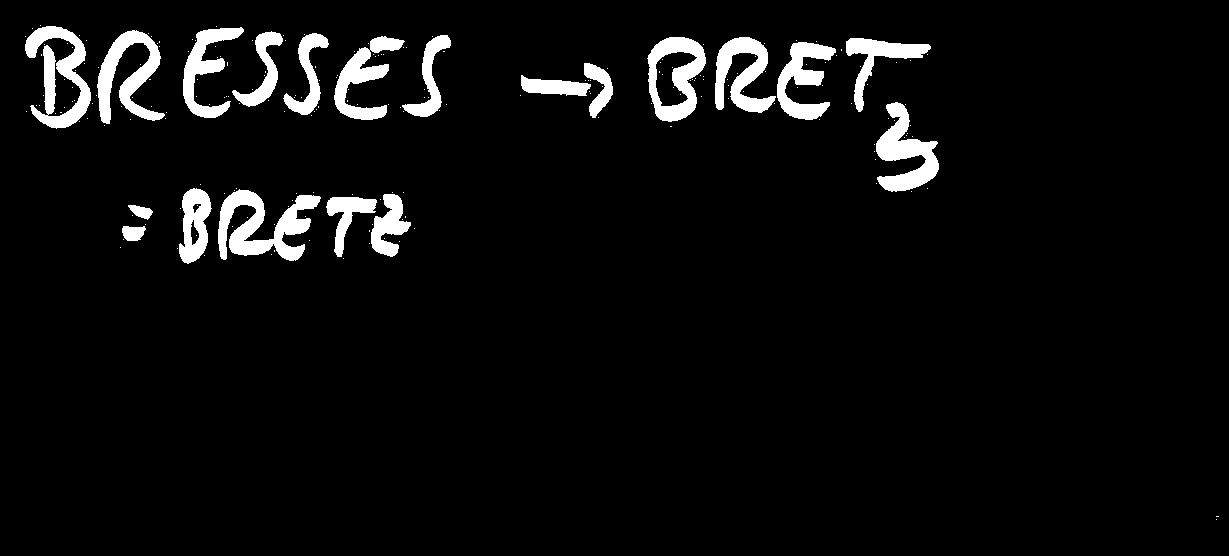 BRESSES → BRETZ
= BRETZ